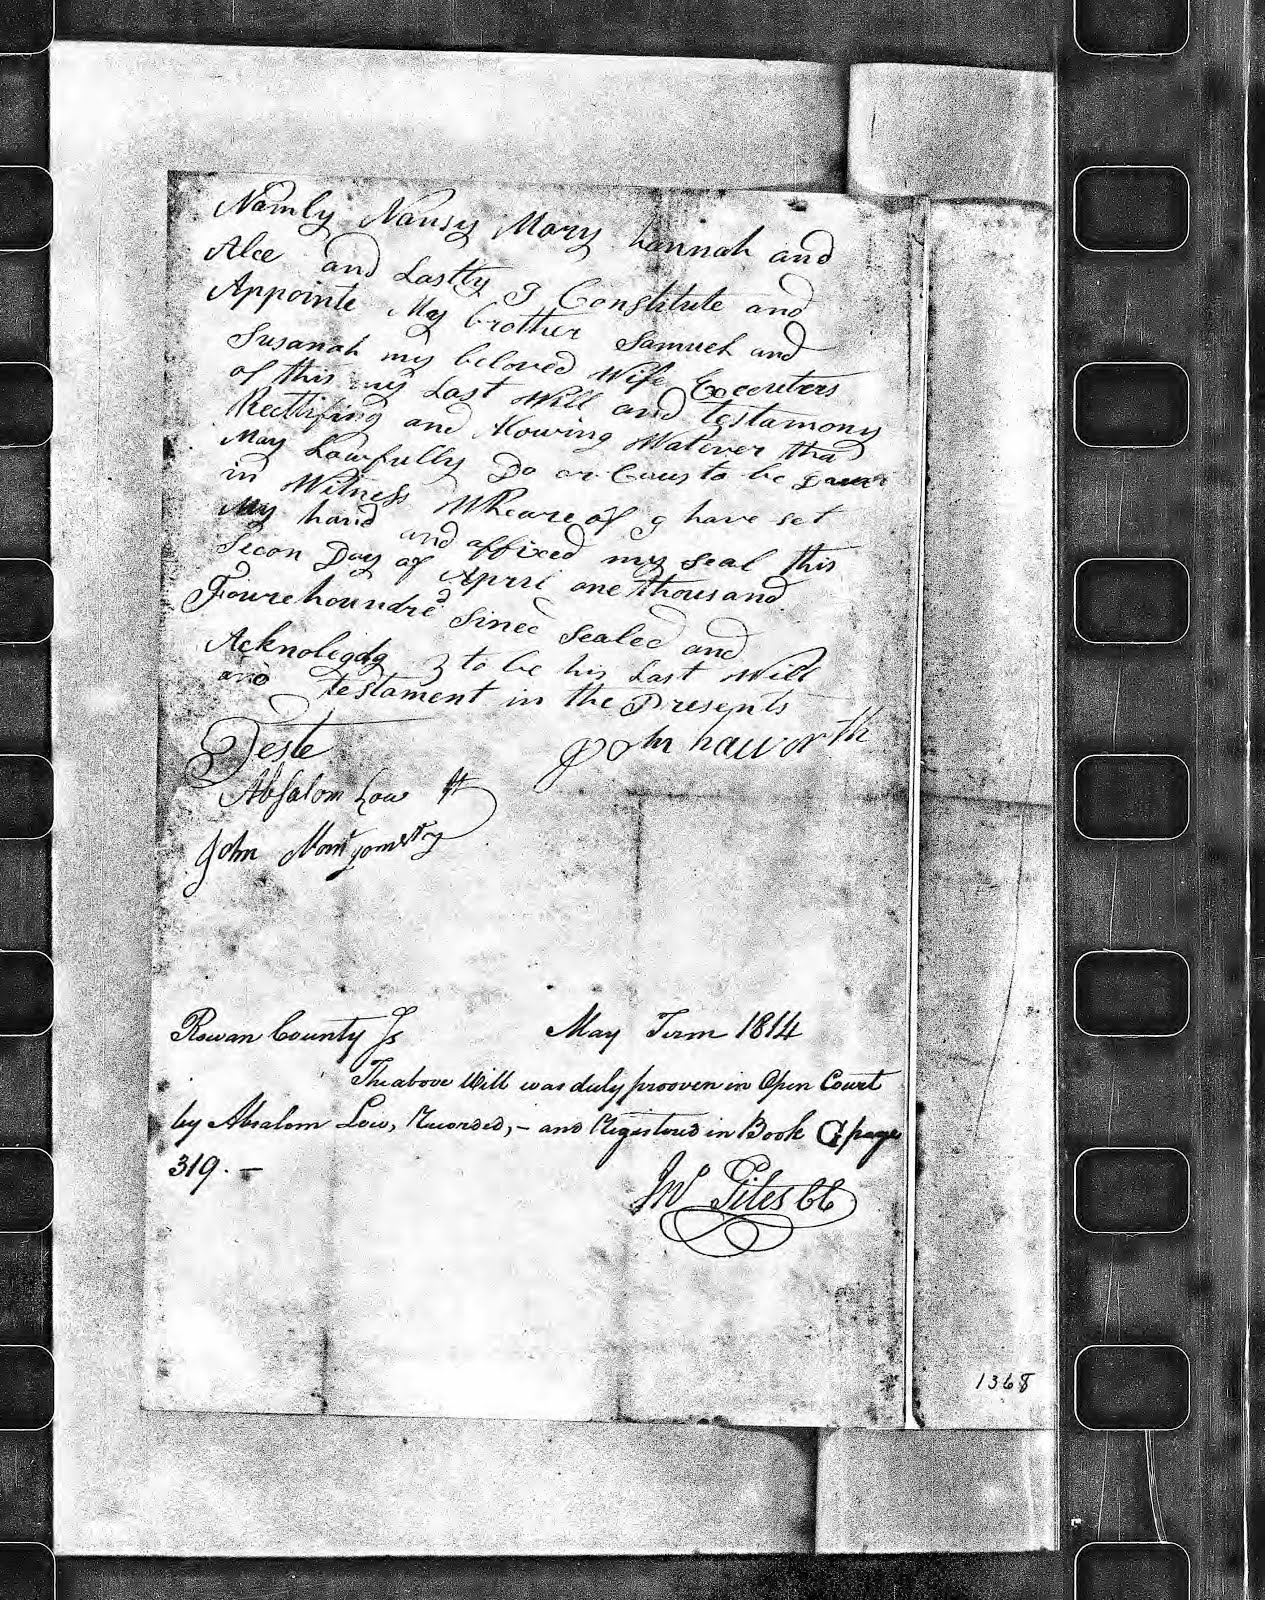 Namly Nansy Mary hannah and
Alce and Lastly I Constitute and
Appointe My brother Samuel and
Susanah my beloved Wife Excecuters
of this my Last Will and testamony
Rectifing and Alowing Watever tha
May Lawfully Do or Caus to be
in Witness Wheare of I have set
My hand and affixed my seal this
Secon Day of Aprri one thousand
Fourehoundred Sined Sealed and
Acknoligdg to be his Last Will
and testament in the Presents
Teste John haworth
Absalom Low
John Montgomery
Rowan County Js May Term 1814
The above Will was duly prooven in Open Court
by Absalom Low, Recorded, - and Registered in Book G page
319. -
Jno Giles CC
1368